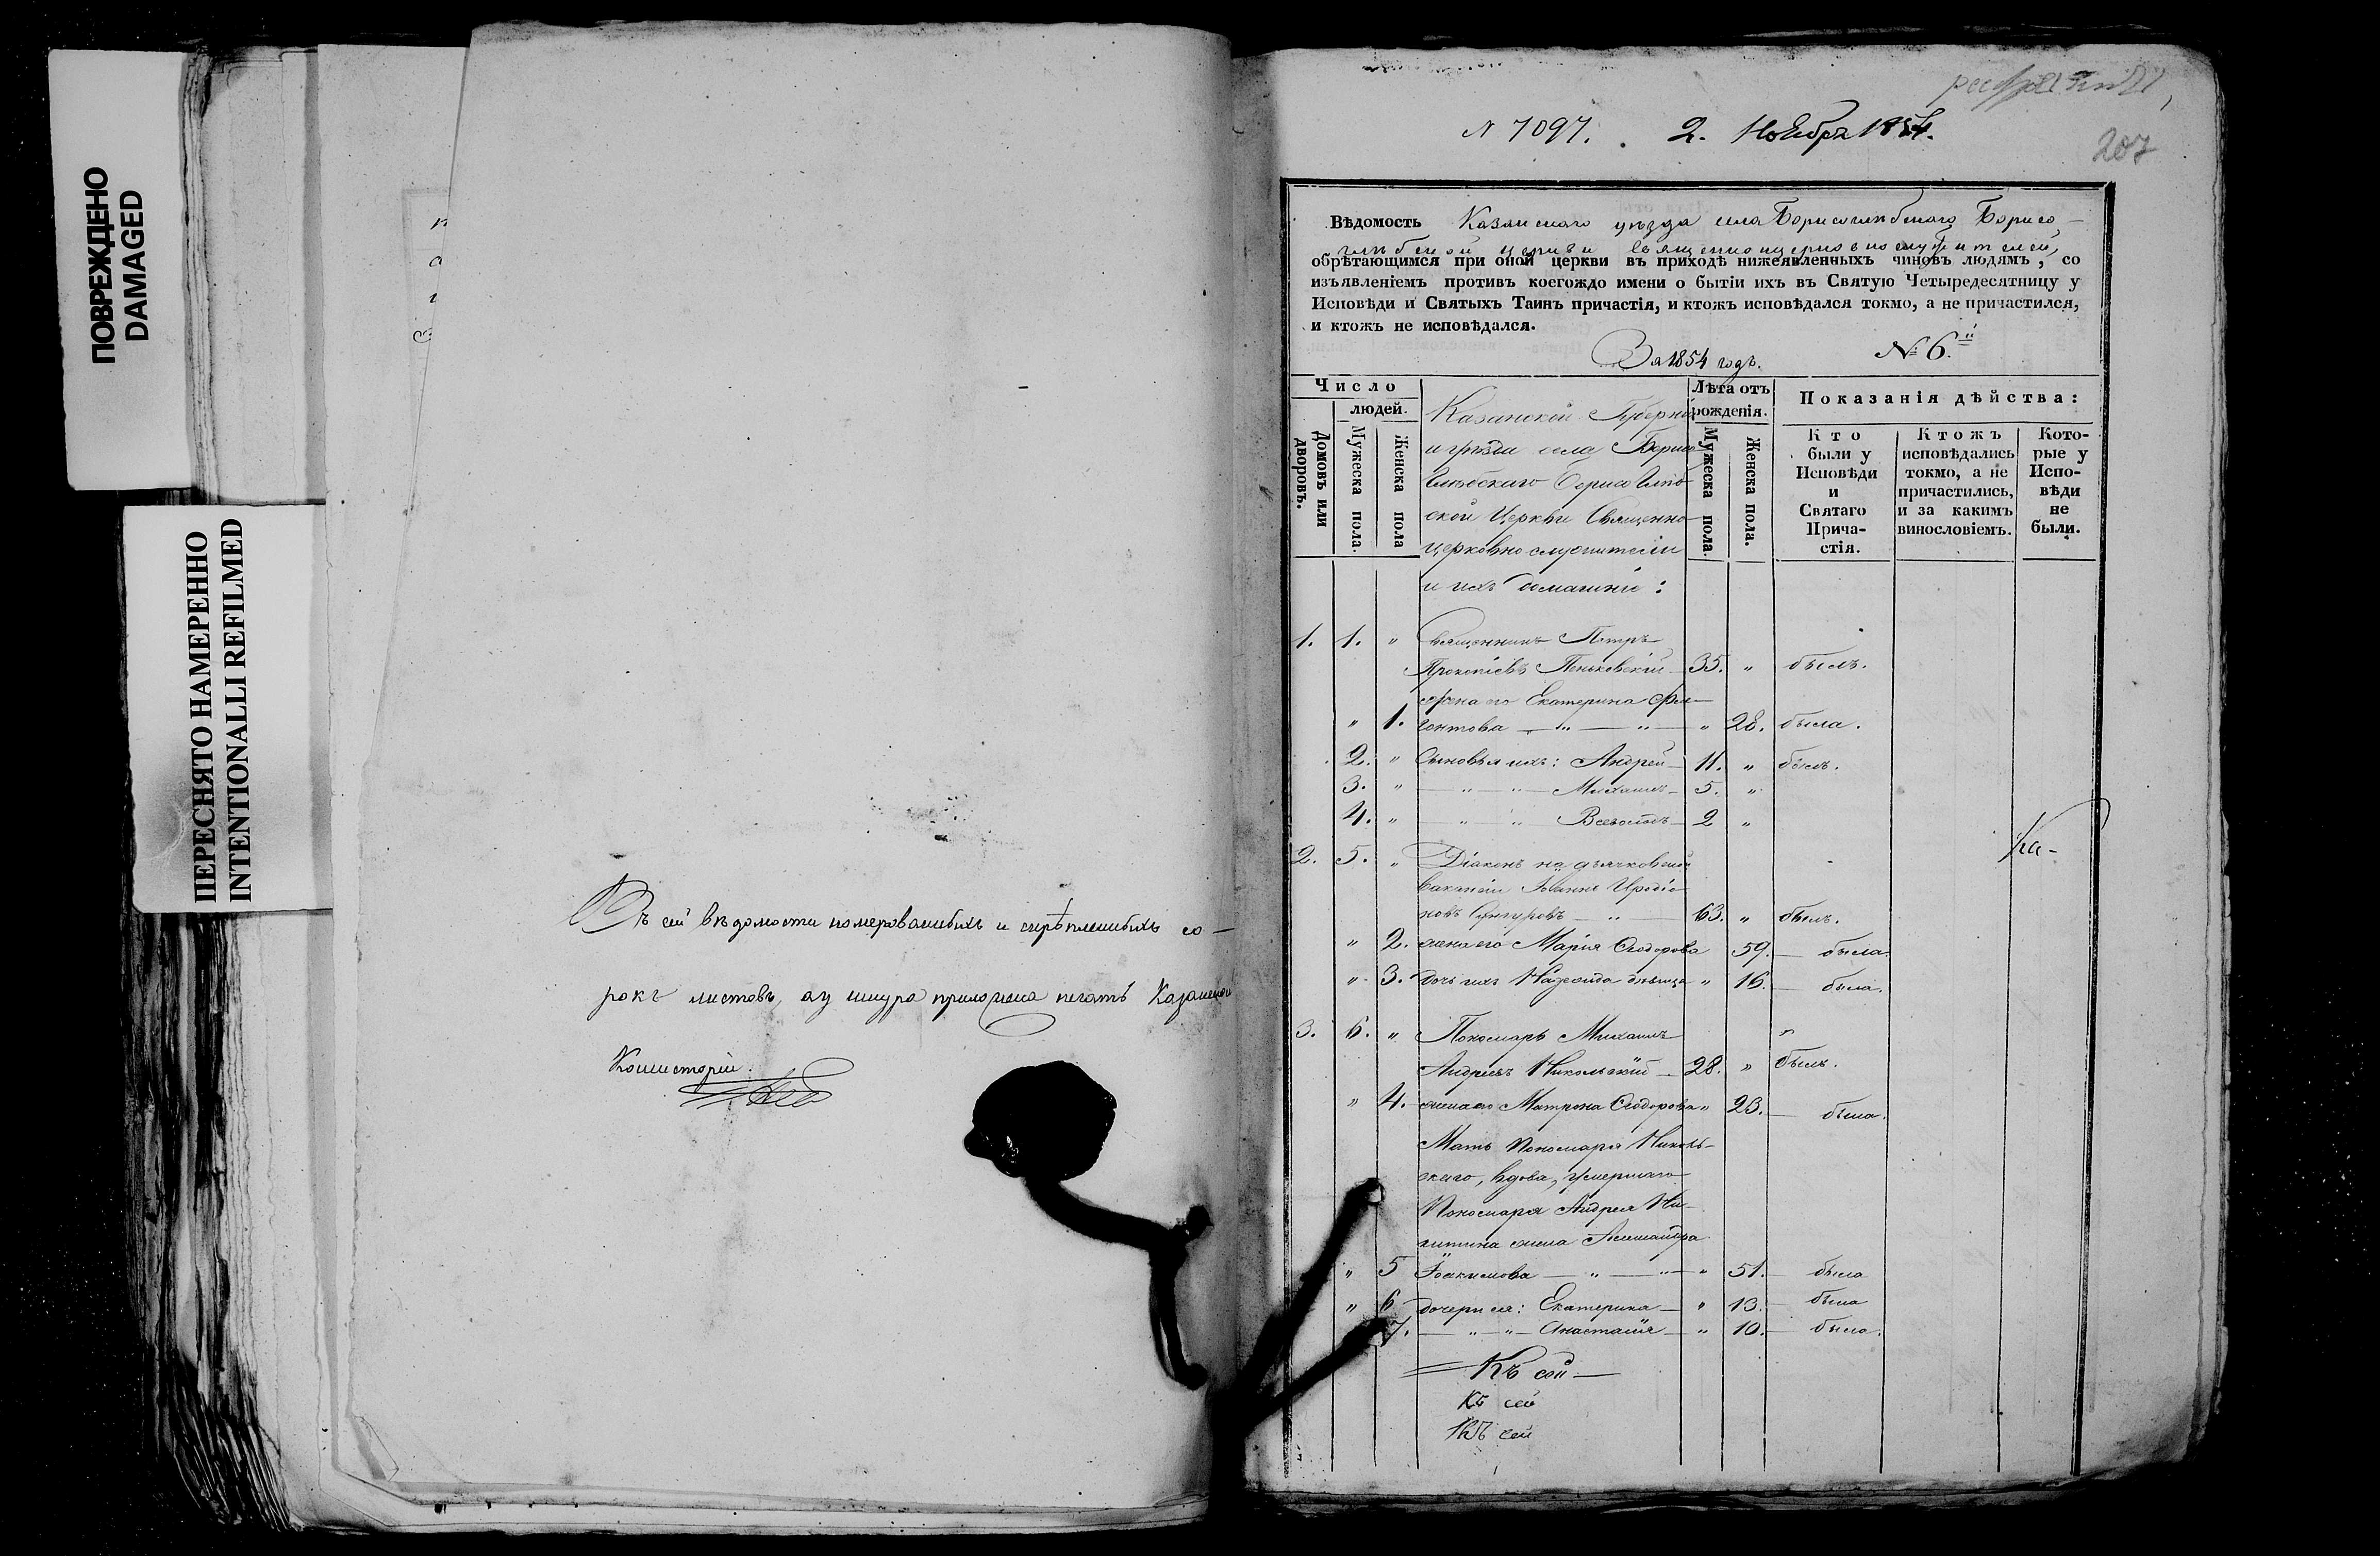 ПОВРЕЖДЕНО
DAMAGED
ПЕРЕСНЯТО НАМЕРЕННО
INTENTIONALLI REFILMED
Въ сей вѣдомости номерованныхъ и скрѣпленныхъ со-
рокъ листовъ, а у шнура приложена печать Казанской
Консисторіи.
207
N 7097. 2. Ноября 1854.
Вѣдомость Казанскаго уѣзда села Борисоглѣбскаго Борисо-
глѣбской церкви священноцерковнослужителей,
обрѣтающимся при оной церкви въ приходѣ нижеявленныхъ чиновъ людямъ, со
изъявленіемъ противъ коегождо имени о бытіи ихъ въ Святую Четыредесятницу у
Исповѣди и Святыхъ Таинъ причастія, и ктожъ исповѣдался токмо, а не причастился,
и ктожъ не исповѣдался.
За 1854 годъ. № 6.й
Число
людей.
Домовъ или дворовъ.
Мужеска пола.
Женска пола
Казанской Губерніи
и уѣзда села Борисо
Глѣбскаго Борисо Глѣб
ской Церкви Священно-
церковнослужители
и ихъ домашніе:
Лѣта отъ
рожденія.
Мужеска пола.
Женска пола.
Показанія дѣйства:
Кто
были у
Исповѣди
и
Святаго
Прича-
стія.
Ктожъ
исповѣдались
токмо, а не
причастились,
и за какимъ
винословіемъ.
Кото-
рые у
Испо-
вѣди
не
были.
1. 1. " Священникъ Петръ
Прокопіевъ Пеньковскій 35. " былъ.
жена его Екатерина
" 1. " 28. была.
2. " Сыновья ихъ: Андрей 11. " былъ.
3. " Михаилъ 5. "
4. " 2 "
2. 5. " Діаконъ на дьячковской
вакансіи Іоаннъ Иродіо
новъ 63. " былъ.
" 2. жена его Марія Ѳеодорова 59. была.
" 3. дочь ихъ Надежда дѣвица " 16. была.
3. 6. " Пономарь Михаилъ
Андреевъ Никольскій 28. " былъ.
" 4. жена его Матрона Ѳеодорова " 23. была.
Мать Пономаря Николь-
скаго, вдова, умершаго
Пономаря Андрея Ни-
китина жена Александра
" 5 Іоакимова " 51. была
" 6 дочери ея: Екатерина " 13. была
7. Анастасія " 10. была.
Къ сей
Къ сей
Къ сей